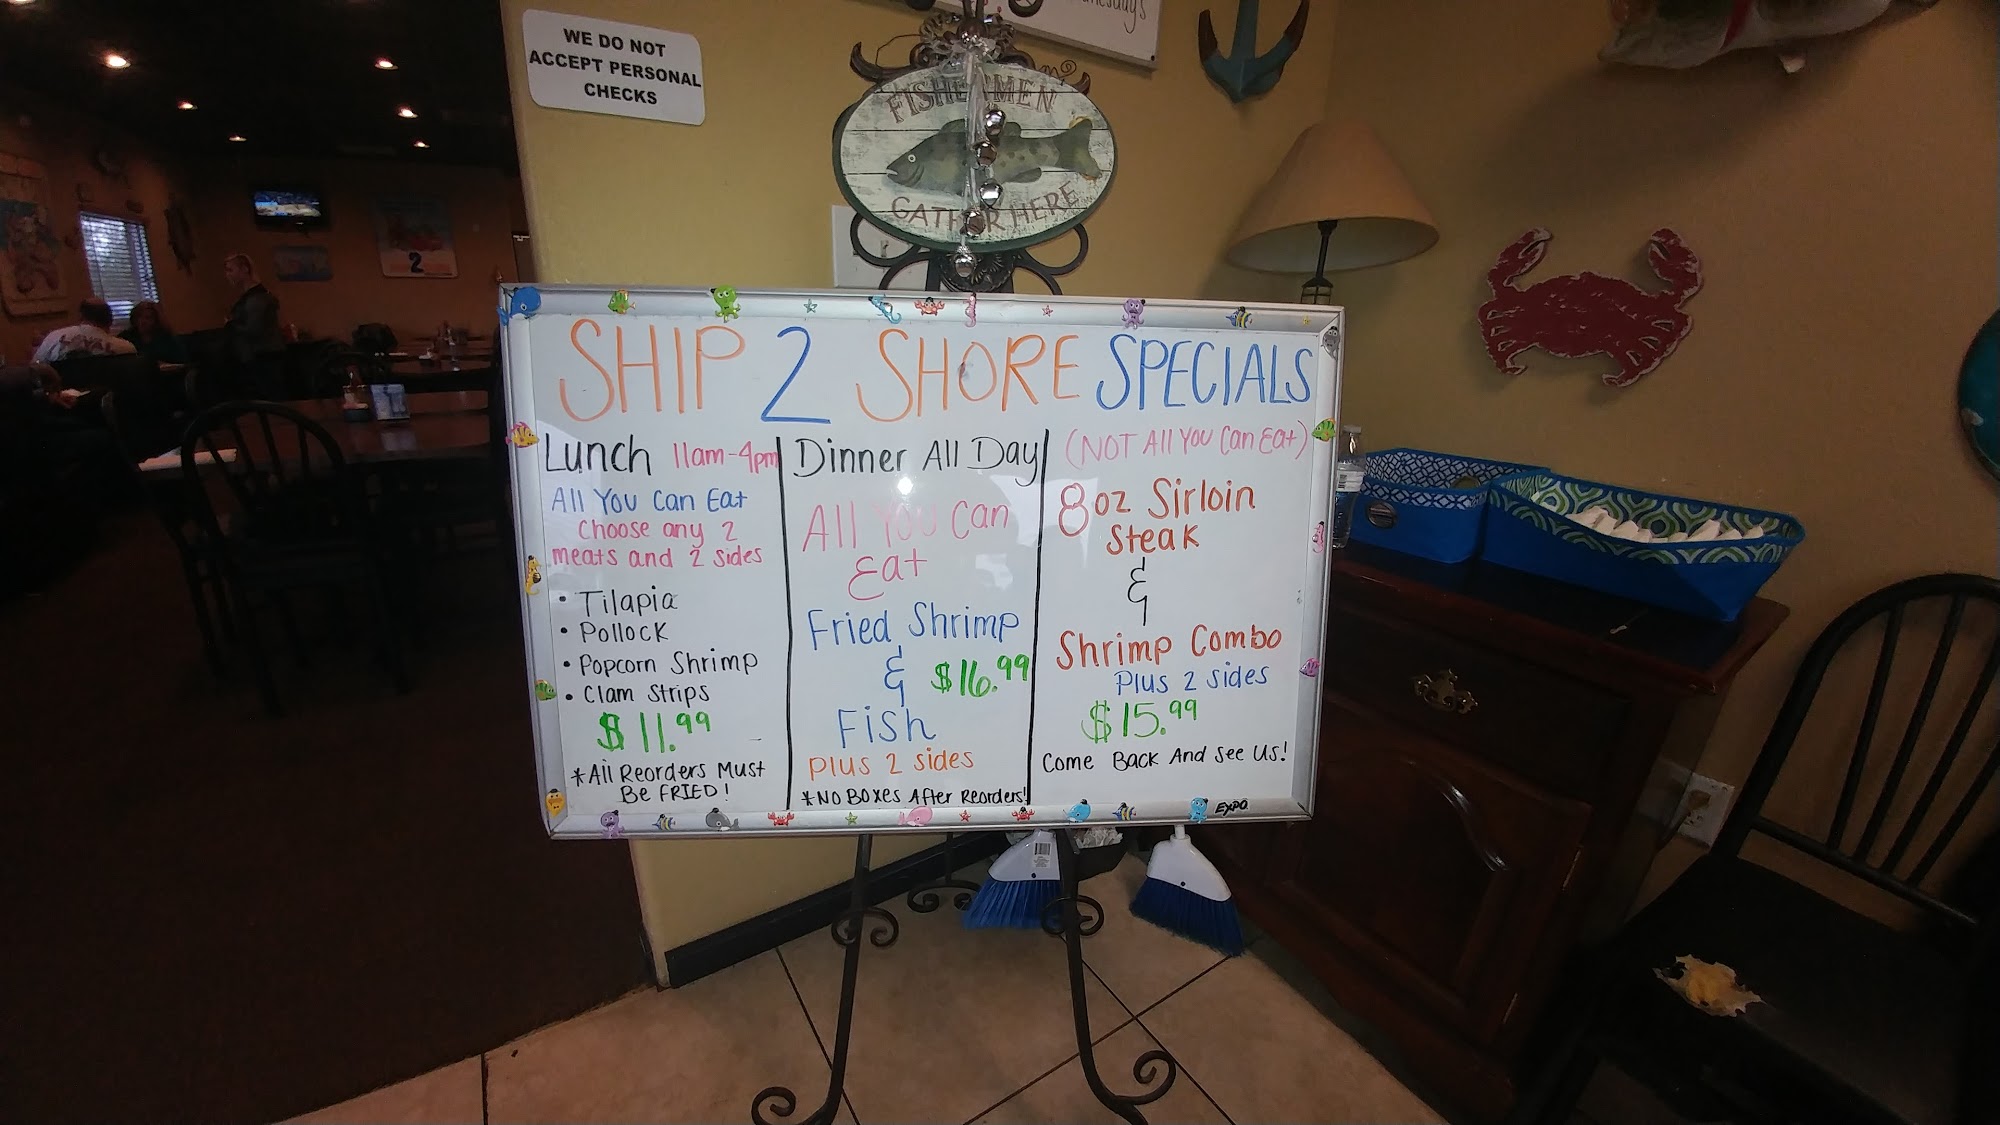 WE DO NOT
ACCEPT PERSONAL
CHECKS
FISHERMEN
GATHER HERE
SHIP 2 SHORE SPECIALS
Lunch 11am-4pm
All You Can Eat
Choose any 2
meats and 2 sides
• Tilapia
• Pollock
• Popcorn Shrimp
• Clam Strips
$11.99
*All Reorders Must
Be FRIED!
Dinner All Day
All You Can
Eat
Fried Shrimp
&
$16.99
Fish
Plus 2 sides
*NO BOXES After Reorders!
(NOT All You Can Eat)
8oz Sirloin
Steak
&
Shrimp Combo
Plus 2 sides
$15.99
Come Back And See Us!
EXPO
2